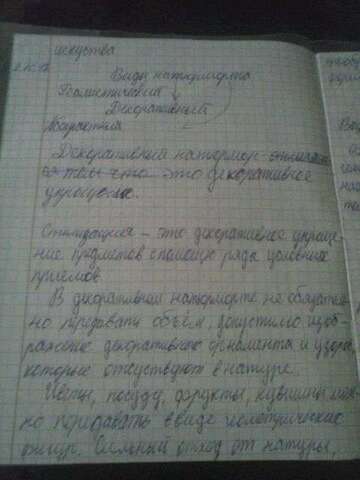 искусства
Виды натюрморта
Реалистический
Декоративный
Абстрактный
Декоративный натюрморт
это декоративное
упрощение.
Стилизация – это декоративное упроще-
ние предметов с помощью ряда условных
приемов
В декоративном натюрморте не обязатель-
но передавать объём, допустимо изоб-
ражение декоративного орнамента и узора
которые отсутствуют в натуре.
Цветы, посуду, фрукты, кувшины мож-
но передавать в виде геометрических
фигур. Сильный отход от натуры,